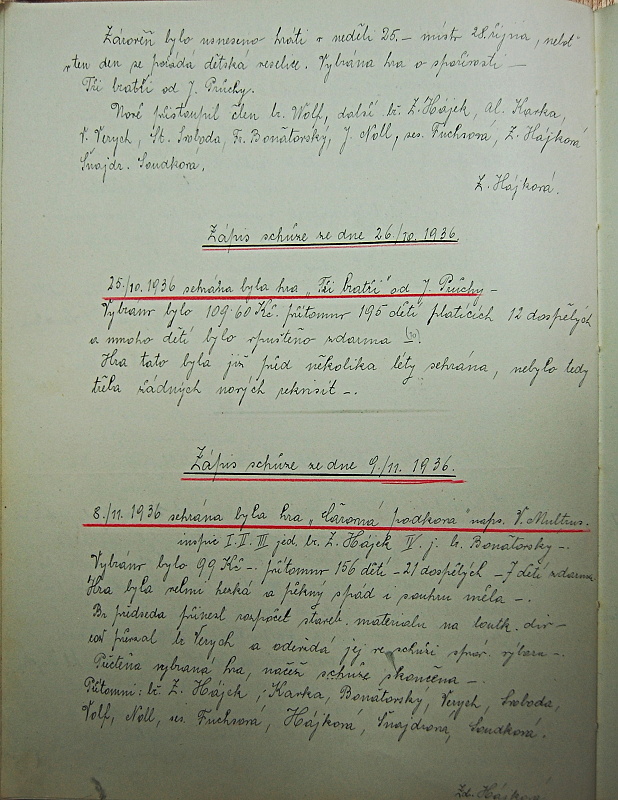 Zároveň bylo usneseno hráti v neděli 25.– místo 28. října, neboť
ten den se pořádá dětská veselice. Vybrána hra o spořivosti –
Tři bratři od J. Průchy.
Nově přistoupil člen br. Wolf, další br. Z. Hájek, Al. Karka,
V. Verych, St. Svoboda, Fr. Bonátorský, J. Noll, ses. Fuchsová, Z. Hájková
Šnajdr. Soudková.
Z. Hájková.
Zápis schůze ze dne 26./10. 1936.
25./10. 1936 sehrána byla hra „Tři bratři" od J. Průchy –
Vybráno bylo 109·60 Kč. přítomno 195 dětí platících 12 dospělých
a mnoho dětí bylo vpuštěno zdarma (70).
Hra tato byla již před několika léty sehrána, nebylo tedy
třeba žádných nových rekvisit –.
Zápis schůze ze dne 9./11. 1936.
8./11. 1936 sehrána byla hra „Čárovná podkova" naps. V. Multrus.
inspic I. II. III jed. br. Z. Hájek IV. j. br. Bonátorský –.
Vybráno bylo 99 Kč –. přítomno 156 dětí – 21 dospělých – 7 dětí zdarma
Hra byla velmi hezká a pěkný spád i souhru měla –.
Br předseda přinesl rozpočet staveb. materialu na loutk. div-
převzal br Verych a odevzdá jej ve schůzi správ. výboru –.
Přečtena vybraná hra, načež schůze skončena –.
Přítomni: br. Z. Hájek, Karka, Bonátorský, Verych, Svoboda,
Volf, Noll, ses. Fuchsová, Hájková, Šnajdrová, Soudková.
Zd. Hájková